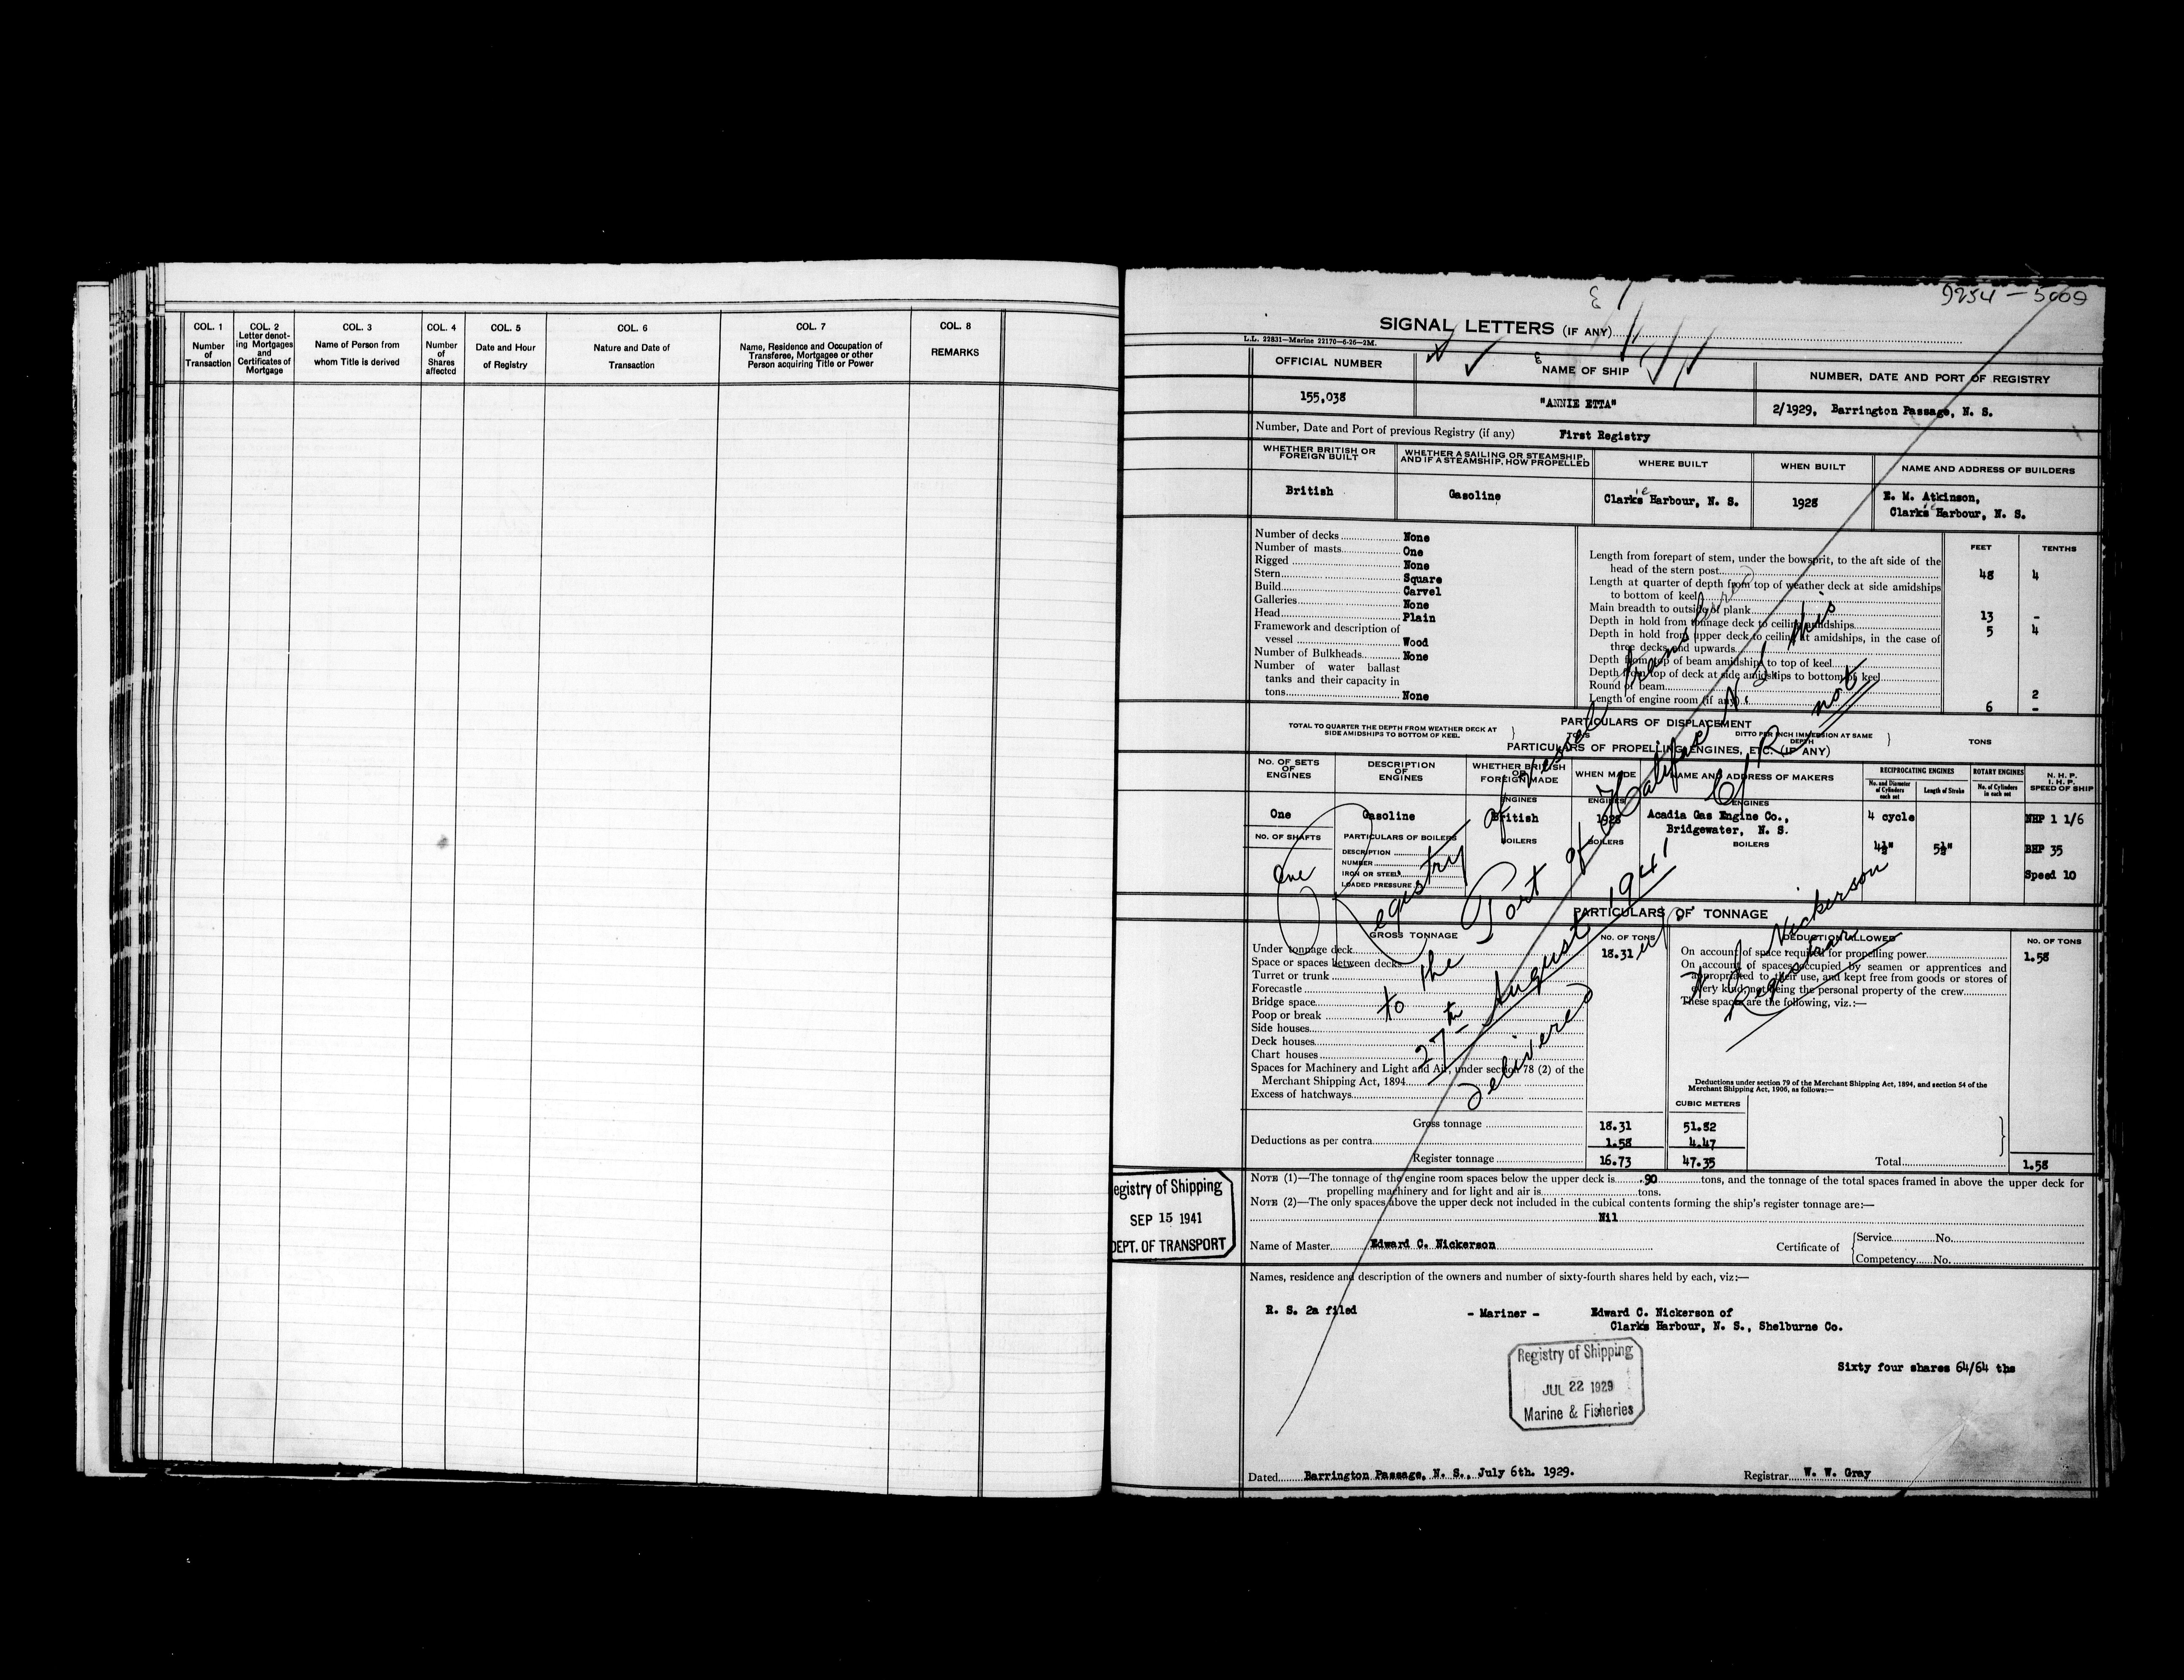 COL. 1
Number
of
Transaction
COL. 2
Letter denot-
ing Mortgages
and
Certificates of
Mortgage
COL. 3
Name of Person from
whom Title is derived
COL. 4
Number
of
Shares
affected
COL. 5
Date and Hour
of Registry
COL. 6
Nature and Date of
Transaction
COL. 7
Name, Residence and Occupation of
Transferee, Mortgagee or other
Person acquiring Title or Power
COL. 8
REMARKS
9254 — 5009
SIGNAL LETTERS (IF ANY)
L.L. 22831—Marine 22170—6-26—2M.
OFFICIAL NUMBER
NAME OF SHIP
NUMBER, DATE AND PORT OF REGISTRY
155,038
"ANNIE ETTA"
2/1929, Barrington Passage, N. S.
Number, Date and Port of previous Registry (if any) First Registry
WHETHER BRITISH OR
FOREIGN BUILT
WHETHER A SAILING OR STEAMSHIP,
AND IF A STEAMSHIP, HOW PROPELLED
WHERE BUILT
WHEN BUILT
NAME AND ADDRESS OF BUILDERS
British
Gasoline
Clark's Harbour, N. S.
1928
E. M. Atkinson,
Clark's Harbour, N. S.
Number of decks None
Number of masts One
Rigged None
Stern Square
Build Carvel
Galleries None
Head Plain
Framework and description of
vessel Wood
Number of Bulkheads None
Number of water ballast
tanks and their capacity in
tons None
FEET TENTHS
Length from forepart of stem, under the bowsprit, to the aft side of the
head of the stern post 48 4
Length at quarter of depth from top of weather deck at side amidships
to bottom of keel
Main breadth to outside of plank 13 -
Depth in hold from tonnage deck to ceiling amidships 5 4
Depth in hold from upper deck to ceiling at amidships, in the case of
three decks and upwards
Depth from top of beam amidships to top of keel
Depth from top of deck at side amidships to bottom of keel
Round of beam 2
Length of engine room (if any) 6 -
PARTICULARS OF DISPLACEMENT
TOTAL TO QUARTER THE DEPTH FROM WEATHER DECK AT
SIDE AMIDSHIPS TO BOTTOM OF KEEL.
TONS
DITTO PER INCH IMMERSION AT SAME
DEPTH
TONS
PARTICULARS OF PROPELLING ENGINES, ETC. (IF ANY)
NO. OF SETS
OF
ENGINES
DESCRIPTION
OF
ENGINES
WHETHER BRITISH
OR
FOREIGN MADE
WHEN MADE
NAME AND ADDRESS OF MAKERS
RECIPROCATING ENGINES
No. and Diameter
of Cylinders
each set
Length of Stroke
ROTARY ENGINES
No. of Cylinders
in each set
N. H. P.
I. H. P.
SPEED OF SHIP
ENGINES
ENGINES
ENGINES
One
Gasoline
British
1928
Acadia Gas Engine Co.,
Bridgewater, N. S.
4 cycle
NHP 1 1/6
NO. OF SHAFTS
PARTICULARS OF BOILERS
BOILERS
BOILERS
BOILERS
4½"
5½"
BHP 35
DESCRIPTION
NUMBER
IRON OR STEEL
LOADED PRESSURE
One
Speed 10
PARTICULARS OF TONNAGE
GROSS TONNAGE
NO. OF TONS
DEDUCTION ALLOWED
NO. OF TONS
Under tonnage deck 18.31
Space or spaces between decks
Turret or trunk
Forecastle
Bridge space
Poop or break
Side houses
Deck houses
Chart houses
Spaces for Machinery and Light and Air, under section 78 (2) of the
Merchant Shipping Act, 1894
Excess of hatchways
On account of space required for propelling power 1.58
On account of spaces occupied by seamen or apprentices and
appropriated to their use, and kept free from goods or stores of
every kind, not being the personal property of the crew
These spaces are the following, viz.:—
Deductions under section 79 of the Merchant Shipping Act, 1894, and section 54 of the
Merchant Shipping Act, 1906, as follows:—
CUBIC METERS
Gross tonnage 18.31 51.82
Deductions as per contra 1.58 4.47
Register tonnage 16.73 47.35
Total 1.58
Registry of vessel transferred
to the Port of Halifax N S this
27th August 1941 C/R not
delivered
Nickerson
Registrar
NOTE (1)—The tonnage of the engine room spaces below the upper deck is .90 tons, and the tonnage of the total spaces framed in above the upper deck for
propelling machinery and for light and air is tons.
NOTE (2)—The only spaces above the upper deck not included in the cubical contents forming the ship's register tonnage are:—
Nil
egistry of Shipping
SEP 15 1941
DEPT. OF TRANSPORT
Name of Master Edward C. Nickerson
Certificate of
Service No.
Competency No.
Names, residence and description of the owners and number of sixty-fourth shares held by each, viz:—
R. S. 2a filed - Mariner - Edward C. Nickerson of
Clark's Harbour, N. S., Shelburne Co.
Sixty four shares 64/64 ths
Registry of Shipping
JUL 22 1929
Marine & Fisheries
Dated Barrington Passage, N. S., July 6th. 1929.
Registrar W. W. Gray